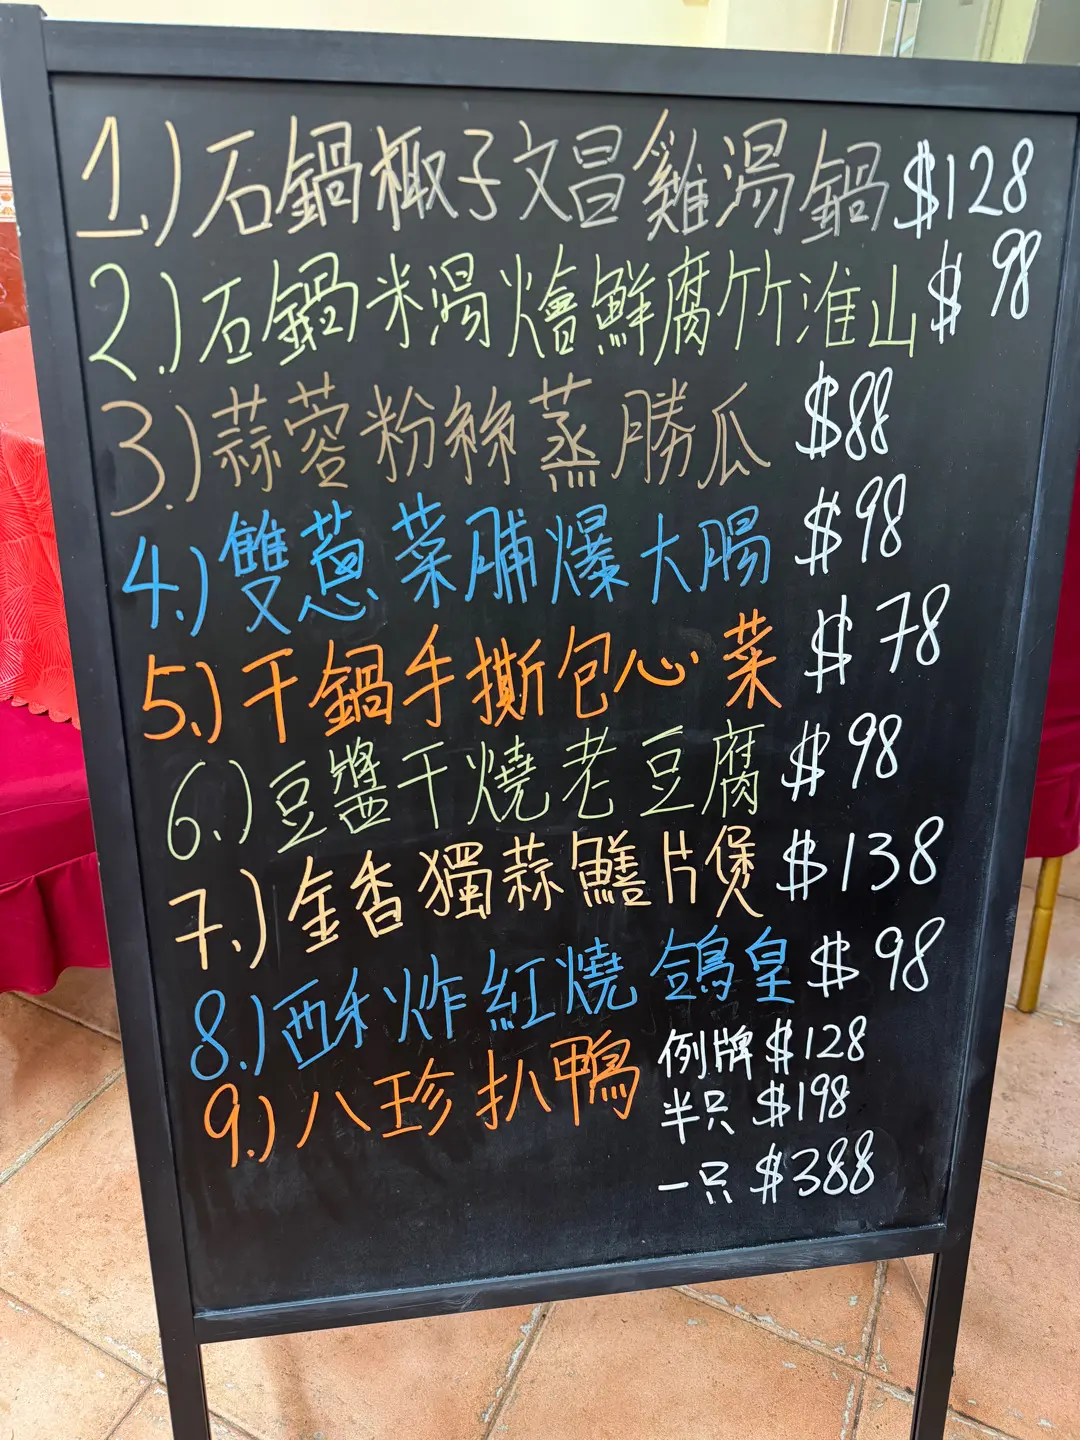 1.) 石鍋椰子文昌雞湯鍋 $128
2.) 石鍋米湯燴鮮腐竹淮山 $98
3.) 蒜蓉粉絲蒸勝瓜 $88
4.) 雙蔥菜脯爆大腸 $98
5.) 干鍋手撕包心菜 $78
6.) 豆醬干燒老豆腐 $98
7.) 金香獨蒜鱔片煲 $138
8.) 酥炸紅燒鴿皇 $98
9.) 八珍扒鴨 例牌 $128
半只 $198
一只 $388